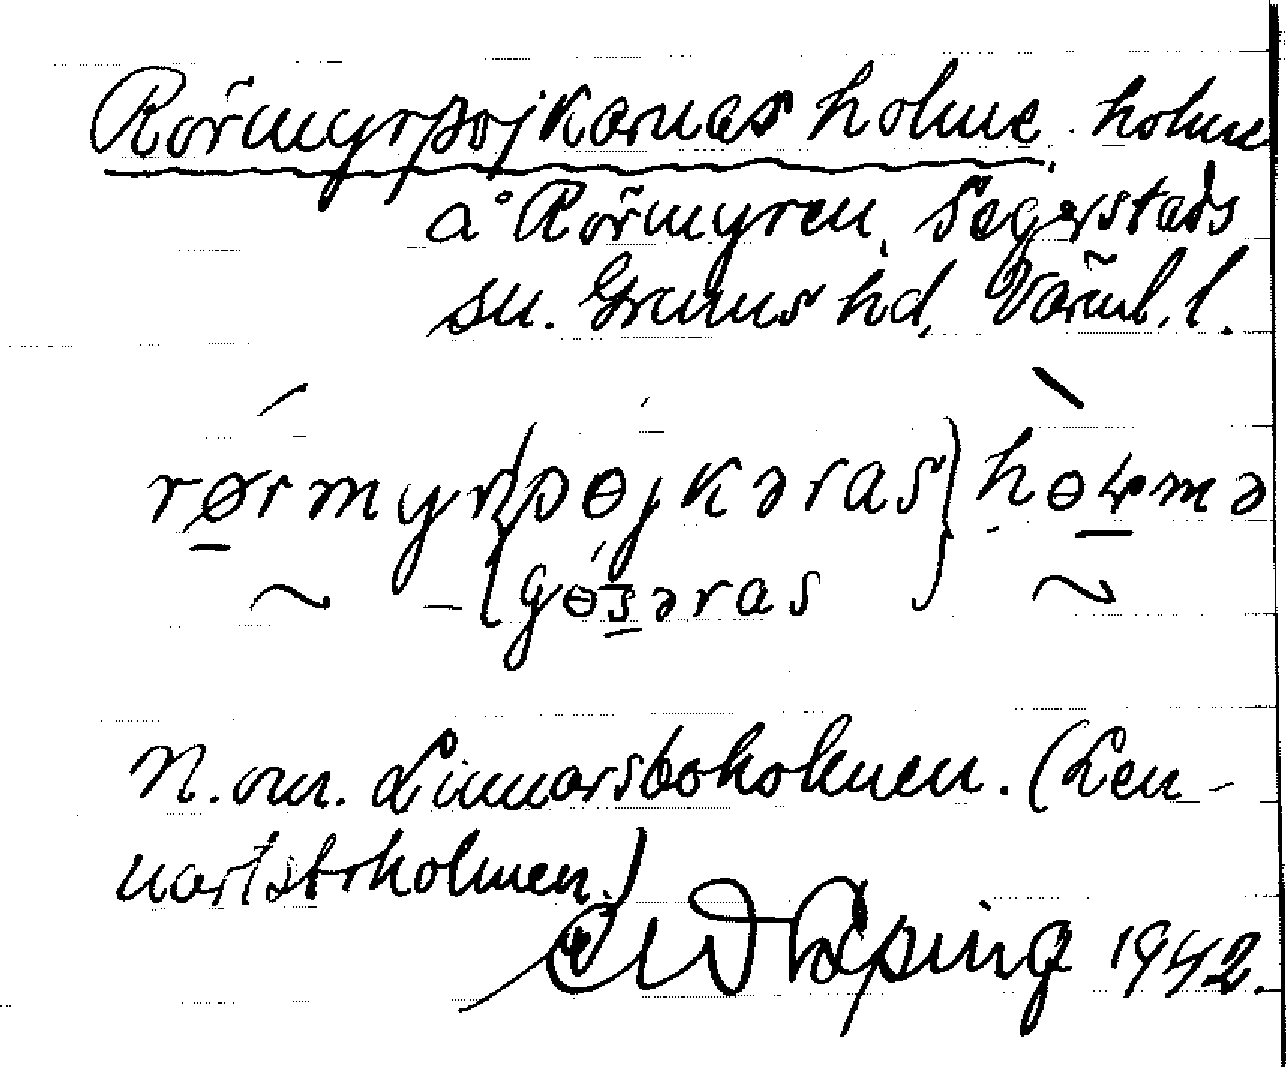 Rörmyrpojkarnas holme. holme
å Rörmyren, Segerstads
sn. Grums hd, Värml. l.
rørmyr {pɵjkəras} hɵɽmə
{gɵsəras}
N. om. Linnarsboholmen. (Len-
nartsboholmen.)
1942.